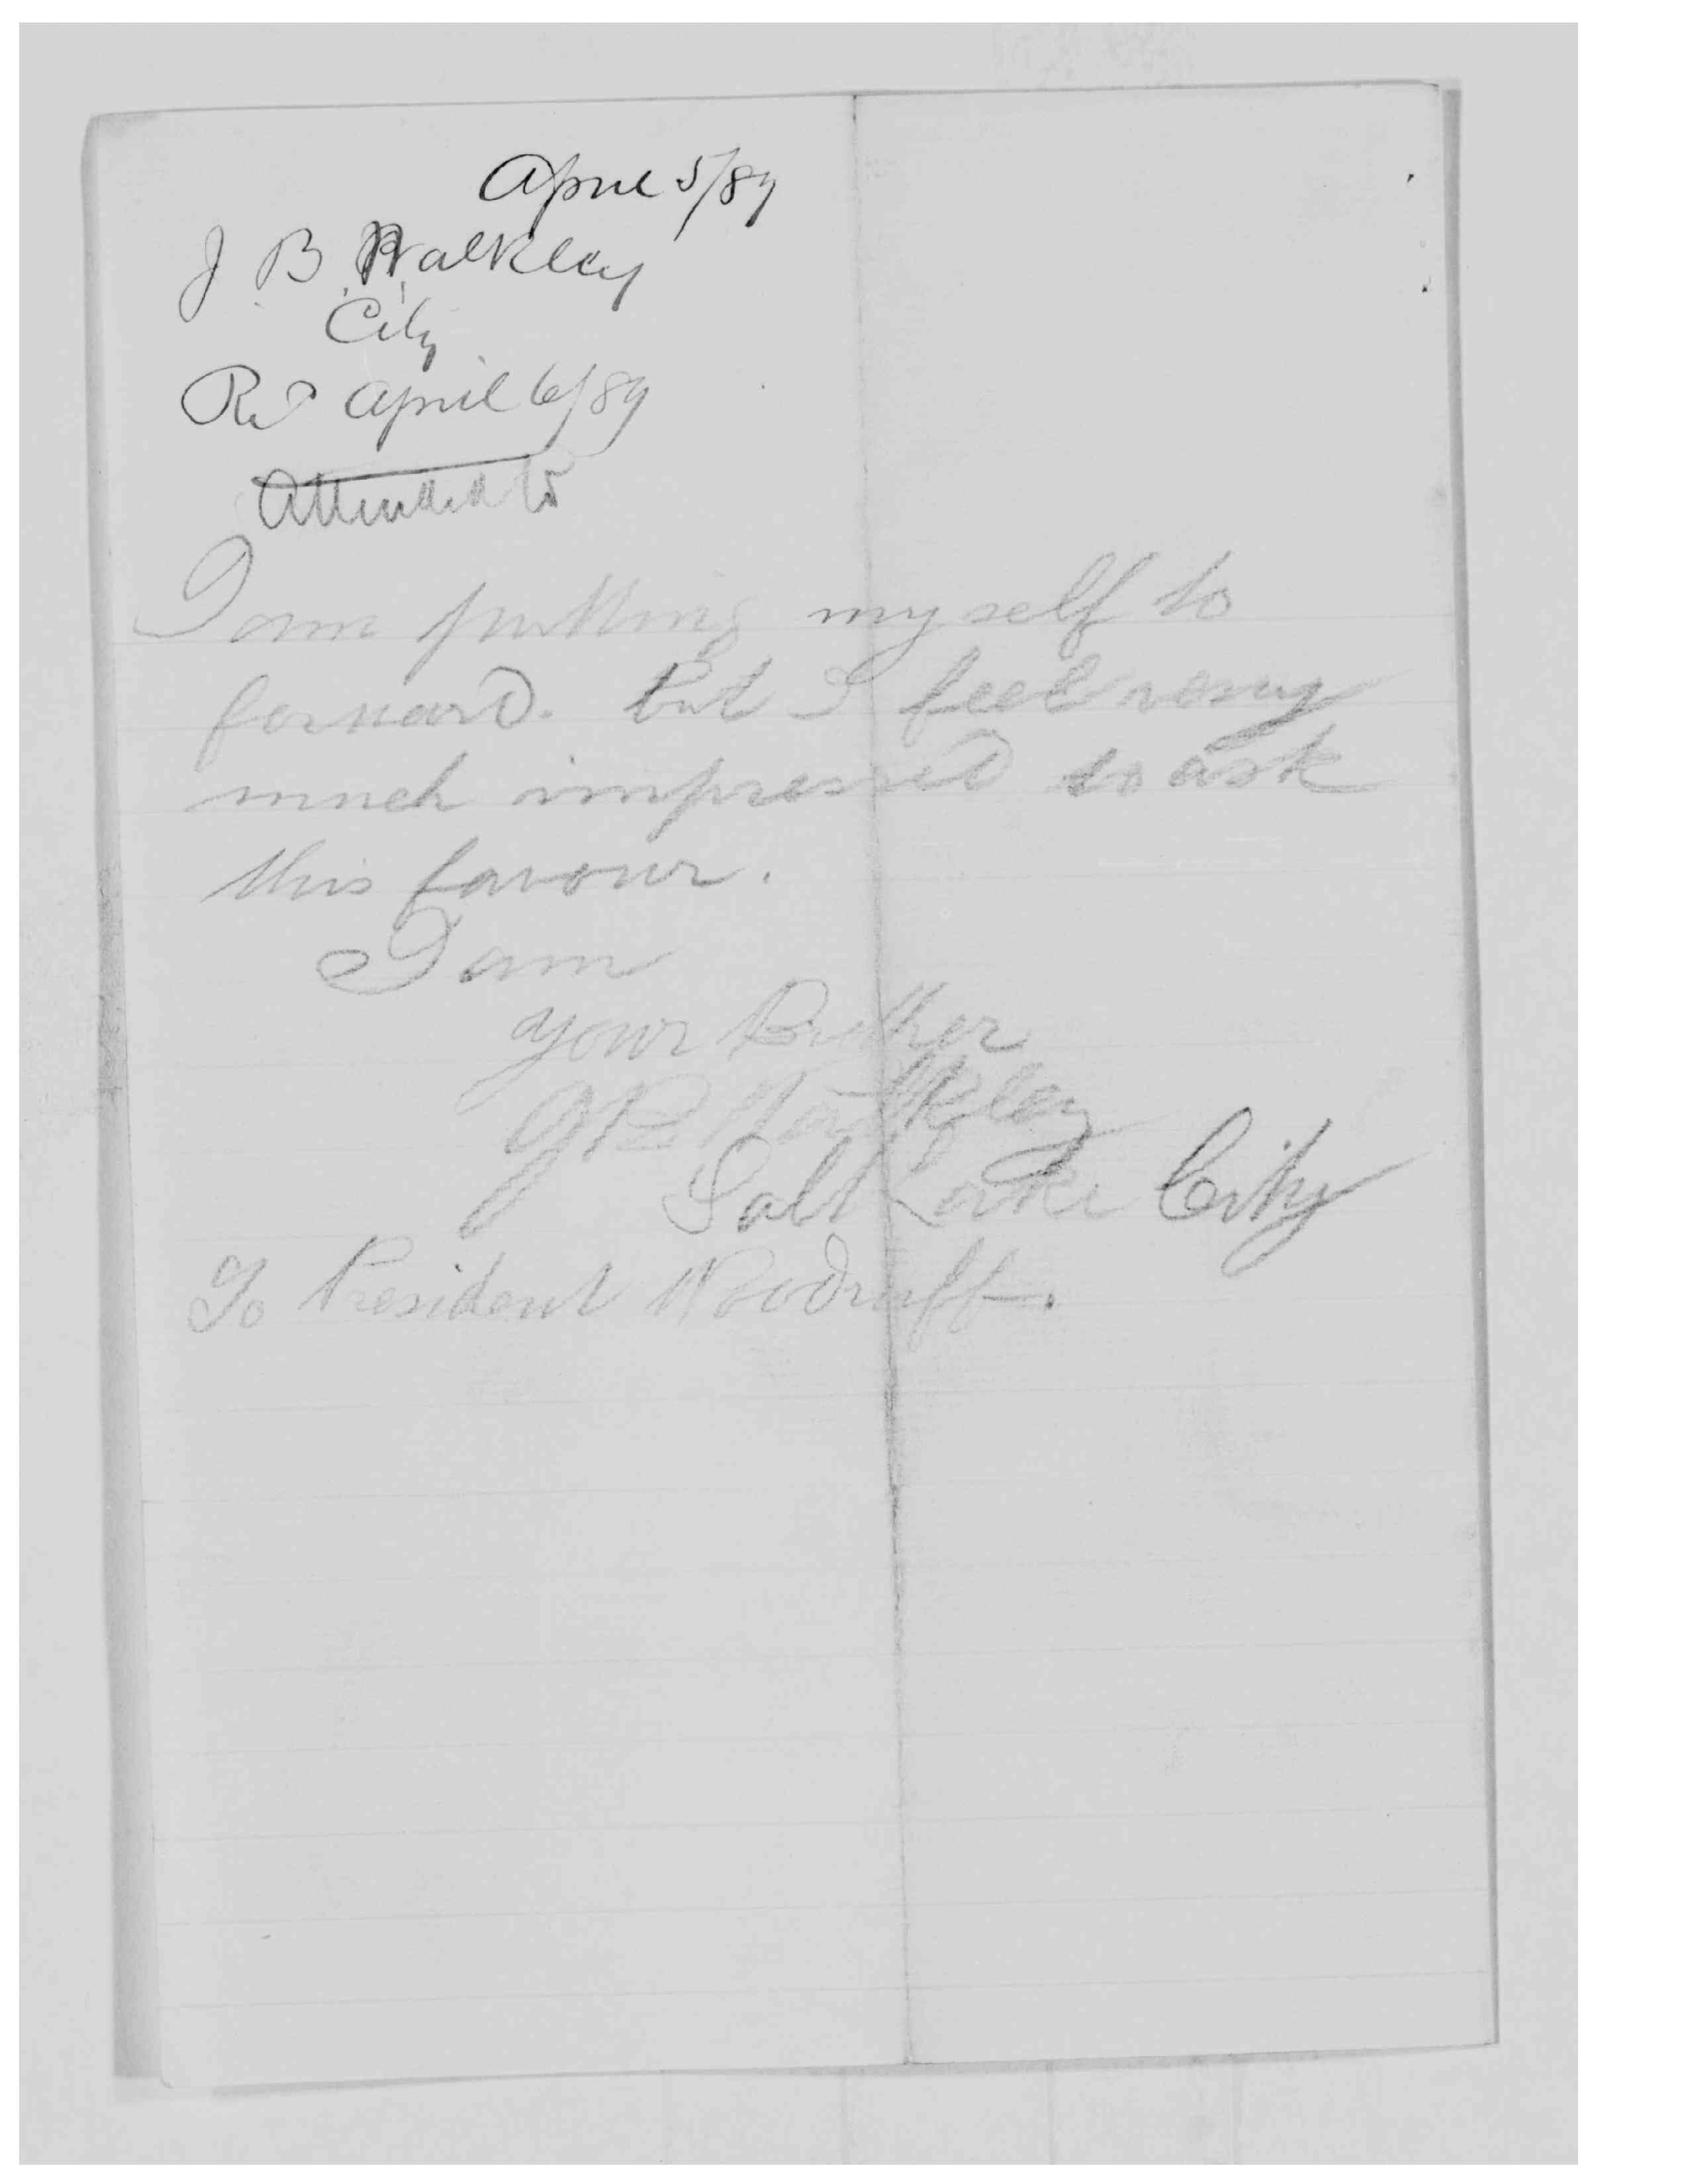 April 5/89
J B Walkley
City
Rec April 6/89
Attended to
I am putting my self to
forward. but I feel very
much impressed to ask
this favour.
I am
your Brother
J B Walkley
Salt Lake City
To President Woodruff.